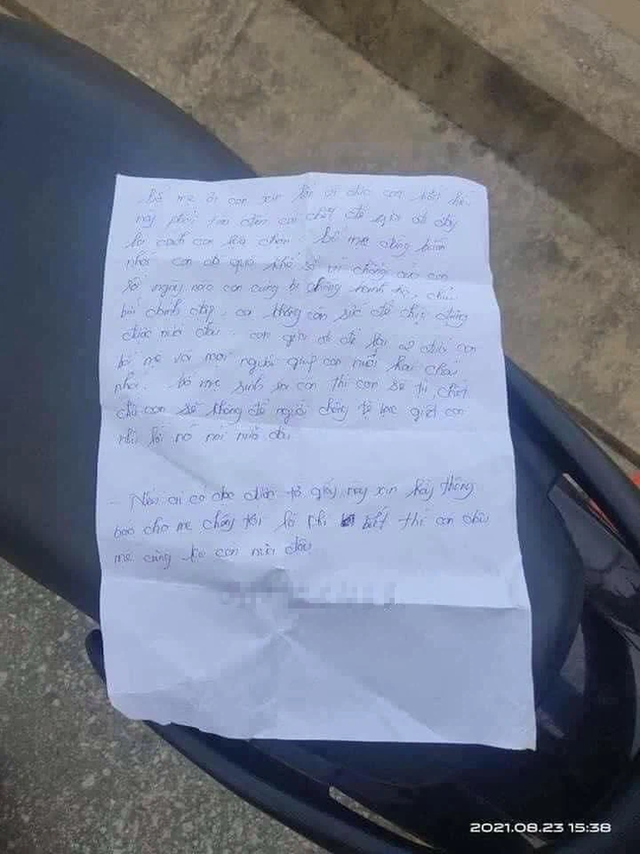 Bố mẹ ơi con xin lỗi vì đức con bất hiếu
này phải tìm đến cái chết để giải
là cách con lựa chọn. Bố mẹ đừng buồn
nhé. con đã quá khổ sở vì chồng của con
rồi ngày nào con cũng bị chồng hành hạ, chửi
bới đánh đập, con không còn sức để chịu đựng
được nữa đâu. con giờ để lại 2 đứa con
bố mẹ và mọi người giúp con nuôi hai cháu
nhé. bố mẹ sinh ra con thì con sẽ tự chết
chứ con sẽ không để người chồng tệ bạc giết con
như lời nó nói nữa đâu.
- Nếu ai có đọc được tờ giấy này xin hãy thông
báo cho mẹ chồng tôi biết thì con dâu
mẹ cũng ko còn nữa đâu
2021.08.23 15:38